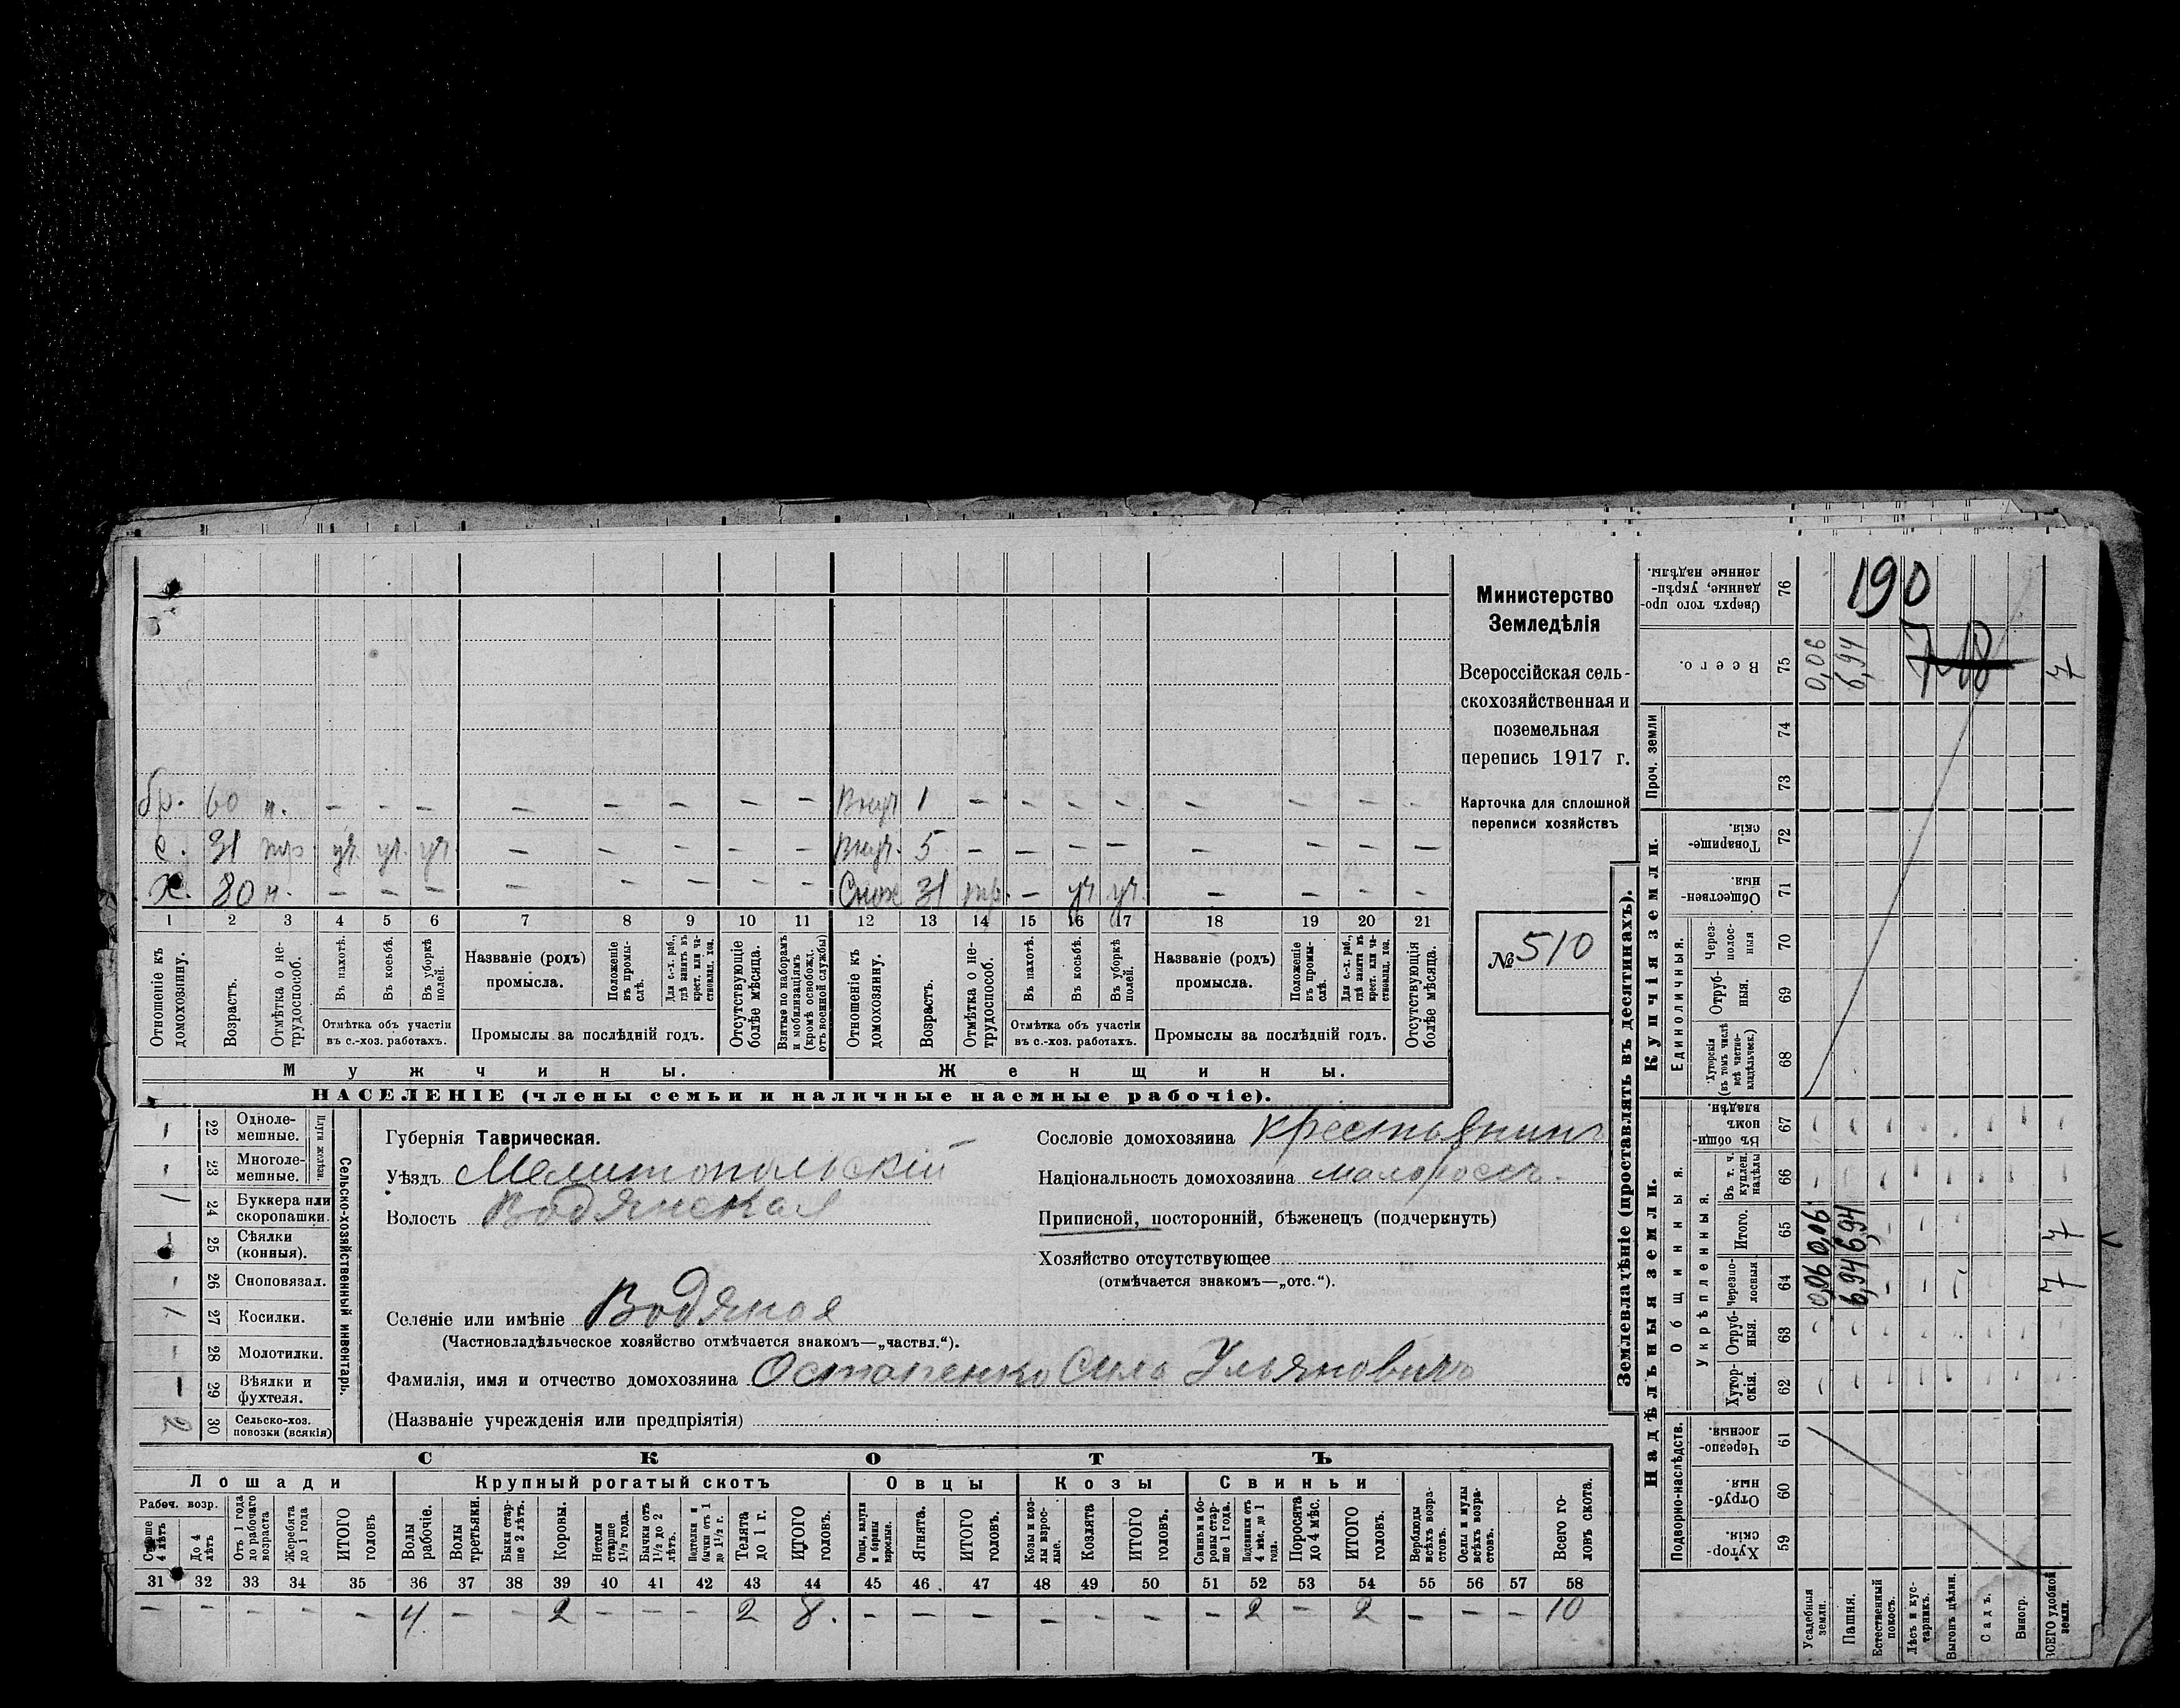 бр. 60 н. – – – – – – – – Внуч 1 – – – – – – – –
с. 31 тр уч. уч. уч. – – – – – Внуч. 5 – – – – – – – –
Х. 80 н. – – – – – – – – Снох 31 тр. – уч уч. – – – –
1 2 3 4 5 6 7 8 9 10 11 12 13 14 15 16 17 18 19 20 21
Отношеніе къ домохозяину.
Возрастъ.
Отмѣтка о нетрудоспособ.
Въ пахотѣ.
Въ косьбѣ.
Въ уборкѣ полей.
Отмѣтка объ участіи
въ с.-хоз. работахъ.
Названіе (родъ)
промысла.
Положеніе въ промыслѣ.
Для с.-х. раб., гдѣ занятъ въ крест. или частновлад. хоз.
Промыслы за послѣдній годъ.
Отсутствующіе болѣе мѣсяца.
Взятые по наборамъ и мобилизаціямъ (кромѣ освобожд. отъ военной службы)
Отношеніе къ домохозяину.
Возрастъ.
Отмѣтка о нетрудоспособ.
Въ пахотѣ.
Въ косьбѣ.
Въ уборкѣ полей.
Отмѣтка объ участіи
въ с.-хоз. работахъ.
Названіе (родъ)
промысла.
Положеніе въ промыслѣ.
Для с.-х. раб., гдѣ занята въ крест. или частновлад. хоз.
Промыслы за послѣдній годъ.
Отсутствующія болѣе мѣсяца.
Мужчины. Женщины.
НАСЕЛЕНІЕ (члены семьи и наличные наемные рабочіе).
Министерство
Земледѣлія
Всероссійская сель-
скохозяйственная и
поземельная
перепись 1917 г.
Карточка для сплошной
переписи хозяйствъ
№ 510
Плуги желѣзн.
Сельско-хозяйственный инвентарь.
– 22 Одноле-
мешные.
– 23 Многоле-
мешные.
1 24 Буккера или
скоропашки.
– 25 Сѣялки
(конныя).
– 26 Сноповязал.
1 27 Косилки.
– 28 Молотилки.
– 29 Вѣялки и
фухтеля.
2 30 Сельско-хоз.
повозки (всякія)
Губернія Таврическая.
Уѣздъ Мелитопольскій
Волость Водянская
Селеніе или имѣніе Водяная
(Частновладѣльческое хозяйство отмѣчается знакомъ—„частвл.“).
Фамилія, имя и отчество домохозяина Остапенко Сила Ульяновичъ
(Названіе учрежденія или предпріятія)
Сословіе домохозяина крестьянинъ
Національность домохозяина малороссъ.
Приписной, посторонній, бѣженецъ (подчеркнуть)
Хозяйство отсутствующее
(отмѣчается знакомъ—„отс.“).
СКОТЪ
Лошади Крупный рогатый скотъ Овцы Козы Свиньи
Рабоч. возр.
Старше 4 лѣтъ
До 4 лѣтъ
Отъ 1 года до рабочаго возраста
Жеребята до 1 года
ИТОГО головъ
Волы рабочіе.
Волы третьяки.
Быки старше 2 лѣтъ.
Коровы.
Нетели старше 1½ года.
Бычки отъ 1½ до 2 лѣтъ.
Подтелки и бычки отъ 1 до 1½ г.
Телята до 1 г.
ИТОГО головъ.
Овцы, валухи и бараны взрослые.
Ягнята.
ИТОГО головъ.
Козы и козлы взрослые.
Козлята
ИТОГО головъ.
Свиньи и боровы старше 1 года.
Подсвинки отъ 4 мѣс. до 1 года.
Поросята до 4 мѣс.
ИТОГО головъ.
Верблюды всѣхъ возрастовъ.
Ослы и мулы всѣхъ возрастовъ.
Всего головъ скота.
31 32 33 34 35 36 37 38 39 40 41 42 43 44 45 46 47 48 49 50 51 52 53 54 55 56 57 58
– – – – – 4 – – 2 – – – 2 8. – – – – – – – 2 – 2 – – – 10
Землевладѣніе (проставлять въ десятинахъ).
Купчія земли.
Надѣльныя земли.
Сверхъ того проданные, укрѣпленные надѣлы. 76
190
Всего. 75 0,06 6,94 7
718
Проч. земли
74
73
Товарищескія. 72
Общественныя. 71
Единоличныя.
Черезполосныя 70
Отрубныя. 69
Хуторскія (въ томъ числѣ всѣ частновладѣльческ.) 68
Общинныя.
Въ общинномъ владѣн. 67
Укрѣпленныя.
Въ т. ч. куплен. надѣлы 66
Итого. 65 0,06 6,94 7
Черезполосныя 64 0,06 6,94 7
Отрубныя. 63
Хуторскія. 62
Подворно-наслѣдств.
Черезполосныя. 61
Отрубныя. 60
Хуторскія. 59
Усадебныя земли.
Пашня.
Естественный покосъ.
Лѣсъ и кустарникъ.
Выгонъ, цѣлин.
Садъ.
Виногр.
ВСЕГО удобной земли.